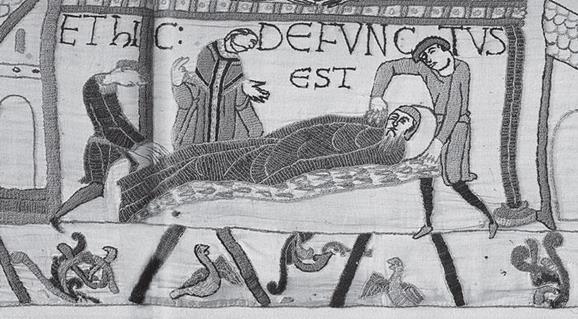 ET hI C: DEFVNC TVS
EST